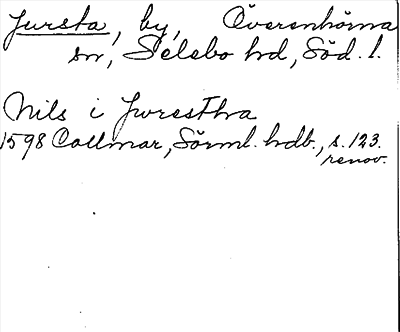 Jursta, by, Överenhörna
sn, Selebo hd, Söd. l.
Nils i Jwrestha
1598 Collmar, Sörml. hdb., s. 123.
renov.